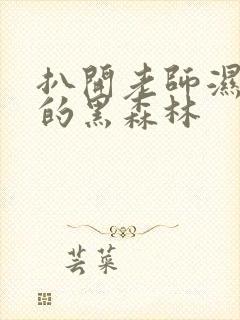 扒開老師濕
的黑森林
芸菜